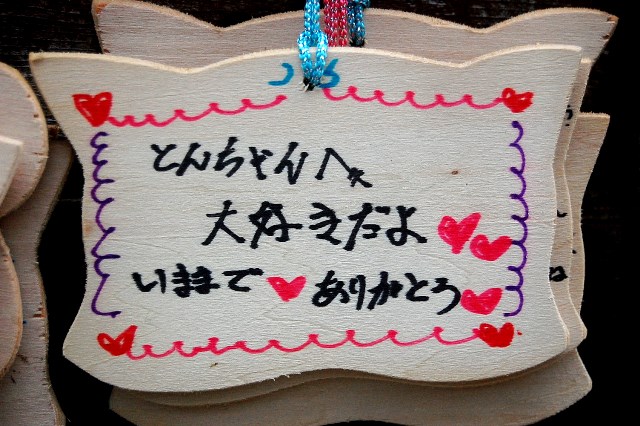 とんちゃんへ
大好きだよ
いままで ありがとう